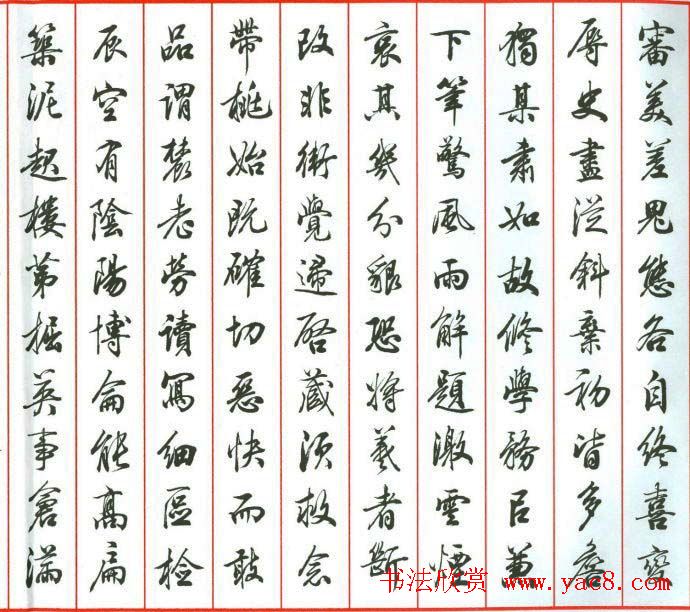 審美差異態各自終喜齊
辱史盡從斜棄初皆多詹
獨某肅如故修學務兼
下筆驚風雨解題激雲煙
哀其幾分恐將羲者斷
改非術覺啓藏須救念
帶桃始既確切惡快而敢
品謂老勞讀寫細區檢
辰空有陰陽博侖能高扁
築泥起樓第掘英事倉滿
书法欣赏 www.yac8.com